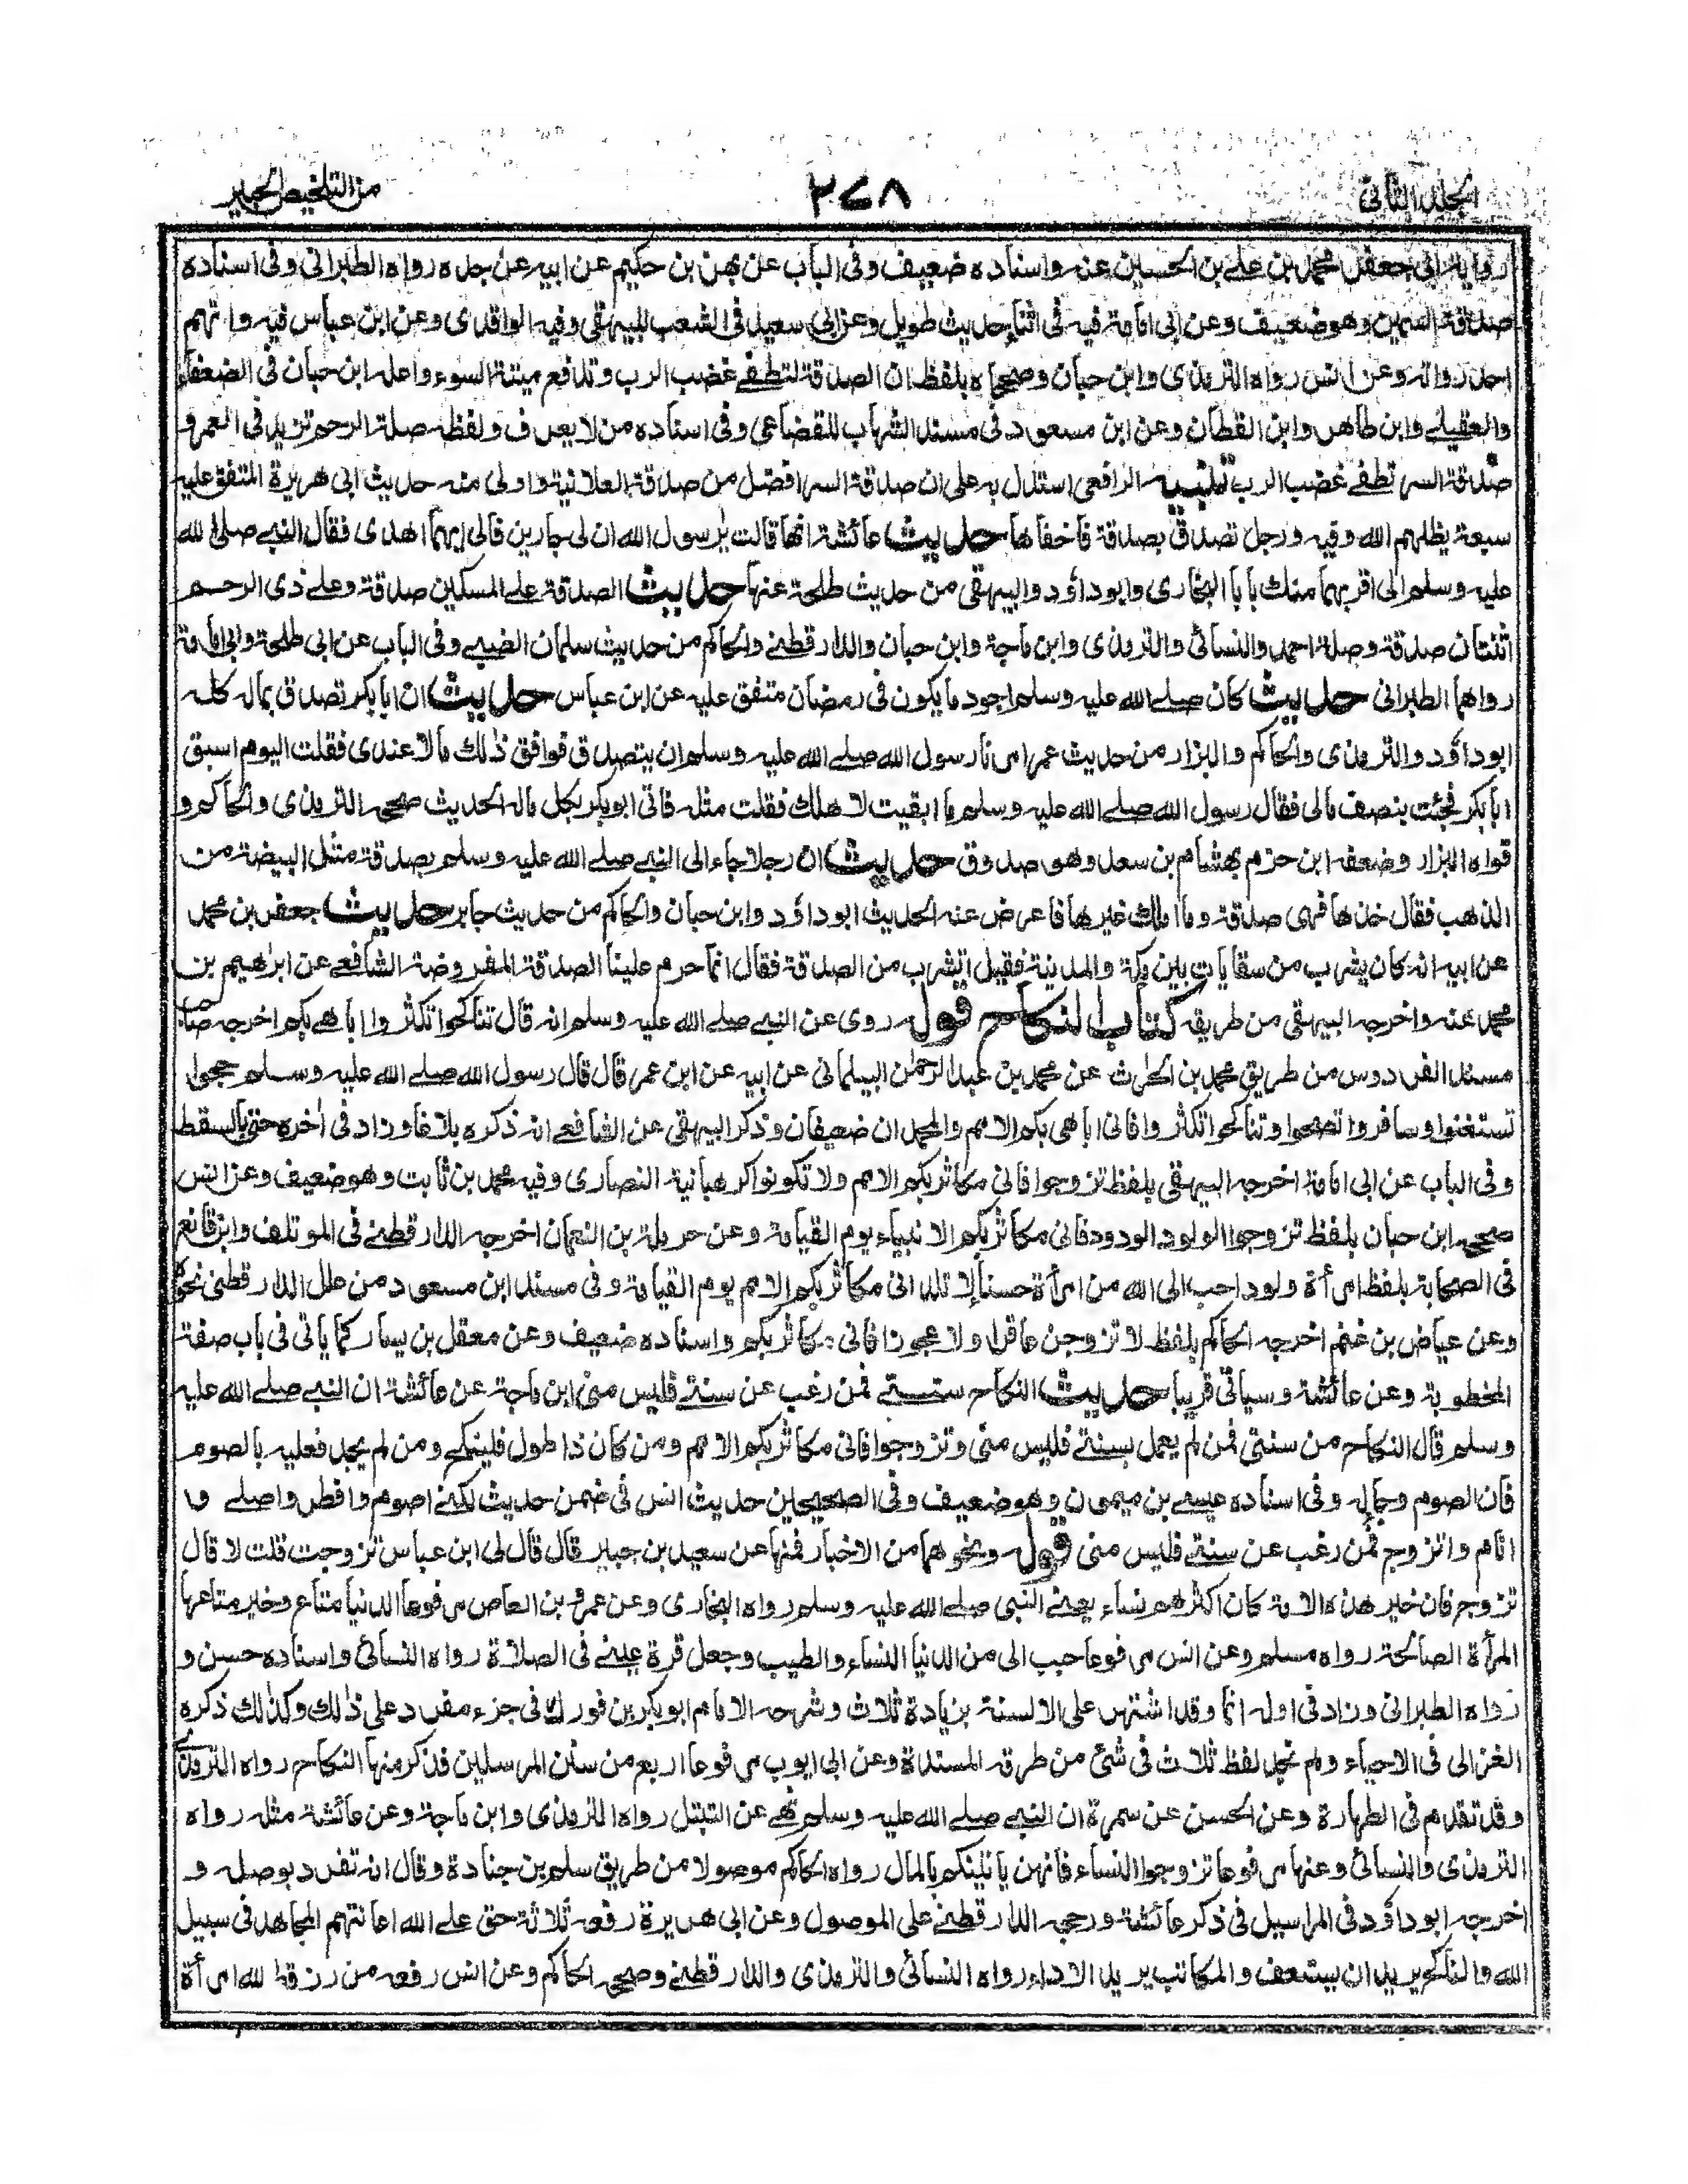 الجلد الثاني ٢٧٨ من التلخيص الحبير
رواية ابي جعفر محمد بن علي بن الحسين عنه واسناده ضعيف وفي الباب عن بهز بن حكيم عن ابيه عن جده رواه الطبراني وفي اسناده
صدقة السمين وهو ضعيف وعن ابي امامة فيه في اثناء حديث طويل وعن ابي سعيد في الشعب للبيهقي وفيه الواقدي وعن ابن عباس فيه واتهم
احمد رواته وعن انس رواه الترمذي وابن حبان وصححاه بلفظ ان الصدقة لتطفئ غضب الرب وتدافع ميتة السوء واعله ابن حبان في الضعفاء
والعقيلي وابن طاهر وابن القطان وعن ابن مسعود في مسند الشهاب للقضاعي وفي اسناده من لا يعرف ولفظه صلة الرحم تزيد في العمر و
صدقة السر تطفئ غضب الرب تنبيه الرافعي استدل به على ان صدقة السر افضل من صدقة العلانية واولى منه حديث ابي هريرة المتفق عليه
سبعة يظلهم الله وفيه ورجل تصدق بصدقة فاخفاها حديث عائشة انها قالت يٰرسول الله ان لي جارين فالى ايهما اهدي فقال النبي صلى الله
عليه وسلم الى اقربهما منك بابا البخاري وابو داؤد والبيهقي من حديث طلحة عنها حديث الصدقة على المسكين صدقة وعلى ذي الرحم
اثنتان صدقة وصلة احمد والنسائي والترمذي وابن ماجة وابن حبان والدارقطني والحاكم من حديث سلمان الضبي وفي الباب عن ابي طلحة وابي امامة
رواهما الطبراني حديث كان صلى الله عليه وسلم اجود ما يكون في رمضان متفق عليه عن ابن عباس حديث ان ابا بكر تصدق بماله كله
ابو داؤد والترمذي والحاكم والبزار من حديث عمر امرنا رسول الله صلى الله عليه وسلم ان يتصدق فوافق ذلك مالا عندي فقلت اليوم اسبق
ابا بكر فجئت بنصف مالي فقال رسول الله صلى الله عليه وسلم ما ابقيت لاهلك فقلت مثله فاتى ابو بكر بكل ماله الحديث صححه الترمذي والحاكم و
قواه البزار وضعفه ابن حزم بهشام بن سعد وهو صدوق حديث ان رجلا جاء الى النبي صلى الله عليه وسلم بصدقة مثل البيضة من
الذهب فقال خذها فهي صدقة وما املك غيرها فاعرض عنه الحديث ابو داؤد وابن حبان والحاكم من حديث جابر حديث جعفر بن محمد
عن ابيه انه كان يشرب من سقايات بين مكة والمدينة فقيل اتشرب من الصدقة فقال انما حرم علينا الصدقة المفروضة الشافعي عن ابرٰهيم بن
محمد عنه واخرجه البيهقي من طريقه كتاب النكاح قوله روي عن النبي صلى الله عليه وسلم انه قال تناكحوا تكثروا اباهي بكم اخرجه صاحب
مسند الفردوس من طريق محمد بن الحٰرث عن محمد بن عبد الرحمٰن البيلماني عن ابيه عن ابن عمر قال قال رسول الله صلى الله عليه وسلم حجوا
تستغنوا وسافروا تصحوا وتناكحوا تكثروا فاني اباهي بكم الامم والمحمدان ضعيفان وذكر البيهقي عن الشافعي انه ذكره بلاغا وزاد في اٰخره حتى بالسقط
وفي الباب عن ابي امامة اخرجه البيهقي بلفظ تزوجوا فاني مكاثر بكم الامم ولا تكونوا كرهبانية النصارى وفيه محمد بن ثابت وهو ضعيف وعن انس
صححه ابن حبان بلفظ تزوجوا الولود الودود فاني مكاثر بكم الانبياء يوم القيامة وعن حرملة بن النعمان اخرجه الدارقطني في الموتلف وابن قانع
في الصحابة بلفظ امرأة ولود احب الى الله من امرأة حسناء لا تلد اني مكاثر بكم الامم يوم القيامة وفي مسند ابن مسعود من علل الدارقطني نحوه
وعن عياض بن غنم اخرجه الحاكم بلفظ لا تزوجن عاقرا ولا عجوزا فاني مكاثر بكم واسناده ضعيف وعن معقل بن يسار كما ياتي في باب صفة
المخطوبة وعن عائشة وسياتي قريبا حديث النكاح سنتي فمن رغب عن سنتي فليس مني ابن ماجة عن عائشة ان النبي صلى الله عليه
وسلم قال النكاح من سنتي فمن لم يعمل بسنتي فليس مني وتزوجوا فاني مكاثر بكم الامم ومن كان ذا طول فلينكح ومن لم يجد فعليه بالصوم
فان الصوم وجاء له وفي اسناده عيسى بن ميمون وهو ضعيف وفي الصحيحين حديث انس في ضمن حديث لكني اصوم وافطر واصلي و
انام واتزوج فمن رغب عن سنتي فليس مني قوله ونحوهما من الاخبار فمنها عن سعيد بن جبير قال قال لي ابن عباس تزوجت قلت لا قال
تزوج فان خير هذه الامة كان اكثرهم نساء يعني النبي صلى الله عليه وسلم رواه البخاري وعن عمرو بن العاص مرفوعا الدنيا متاع وخير متاعها
المرأة الصالحة رواه مسلم وعن انس مرفوعا حبب الى من الدنيا النساء والطيب وجعل قرة عيني في الصلاة رواه النسائي واسناده حسن و
رواه الطبراني وزاد في اوله انما وقد اشتهر على الالسنة بزيادة ثلاث وشرحه الامام ابو بكر بن فورك في جزء مفرد على ذٰلك وكذٰلك ذكره
الغزالي في الاحياء ولم نجد لفظ ثلاث في شئ من طرقه المسندة وعن ابي ايوب مرفوعا اربع من سنن المرسلين فذكر منها النكاح رواه الترمذي
وقد تقدم في الطهارة وعن الحسن عن سمرة ان النبي صلى الله عليه وسلم نهى عن التبتل رواه الترمذي وابن ماجة وعن عائشة مثله رواه
الترمذي والنسائي وعنها مرفوعا تزوجوا النساء فانهن ياتينكم بالمال رواه الحاكم موصولا من طريق سلم بن جنادة وقال انه تفرد بوصله و
اخرجه ابو داؤد في المراسيل في ذكر عائشة ورجح الدارقطني على الموصول وعن ابي هريرة رفعه ثلاثة حق على الله اعانتهم المجاهد في سبيل
الله والناكح يريد ان يستعف والمكاتب يريد الاداء رواه النسائي والترمذي والدارقطني وصححه الحاكم وعن انس رفعه من رزقه الله امرأة